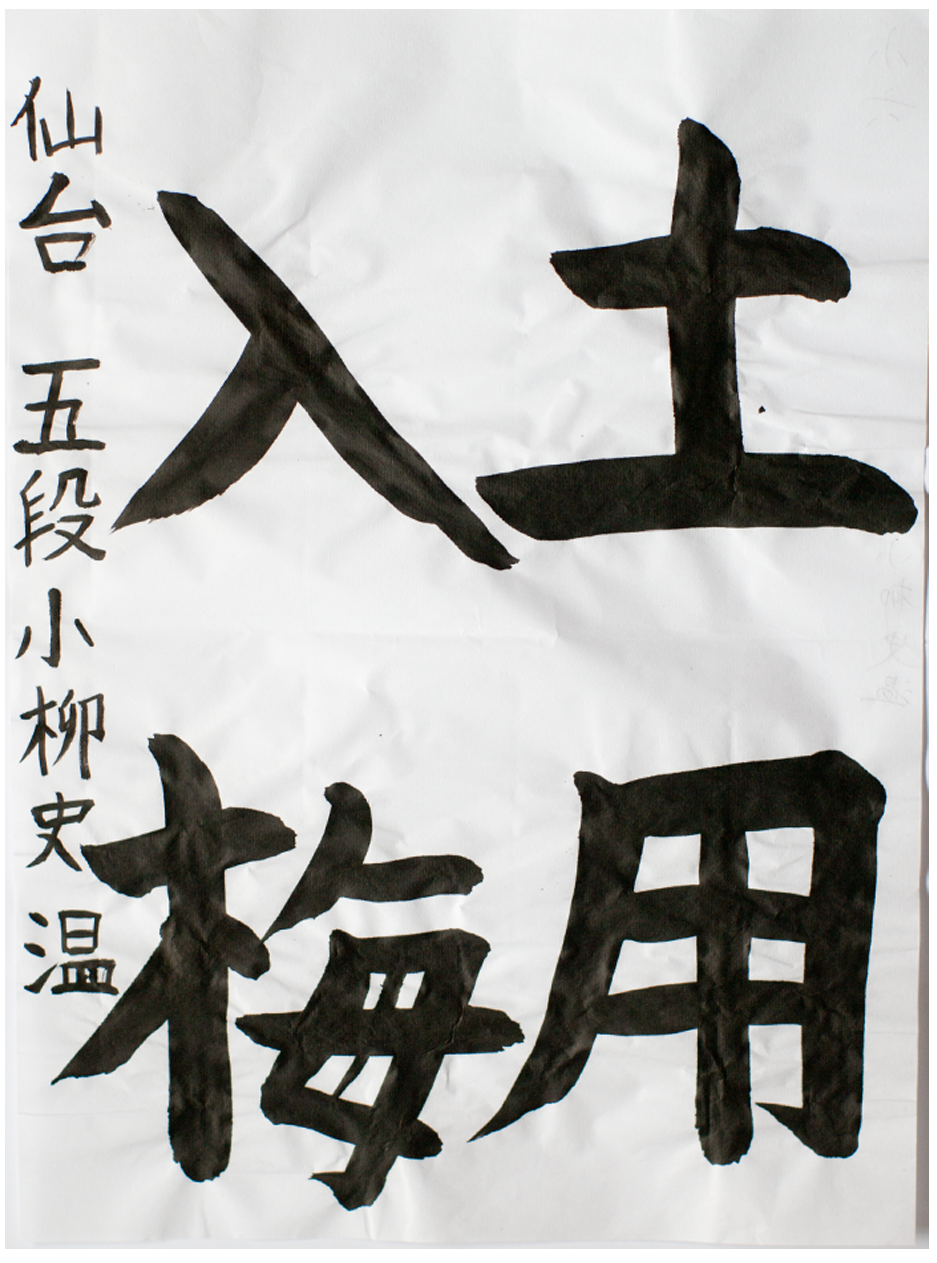 土用
入梅
仙台 五段 小柳史温